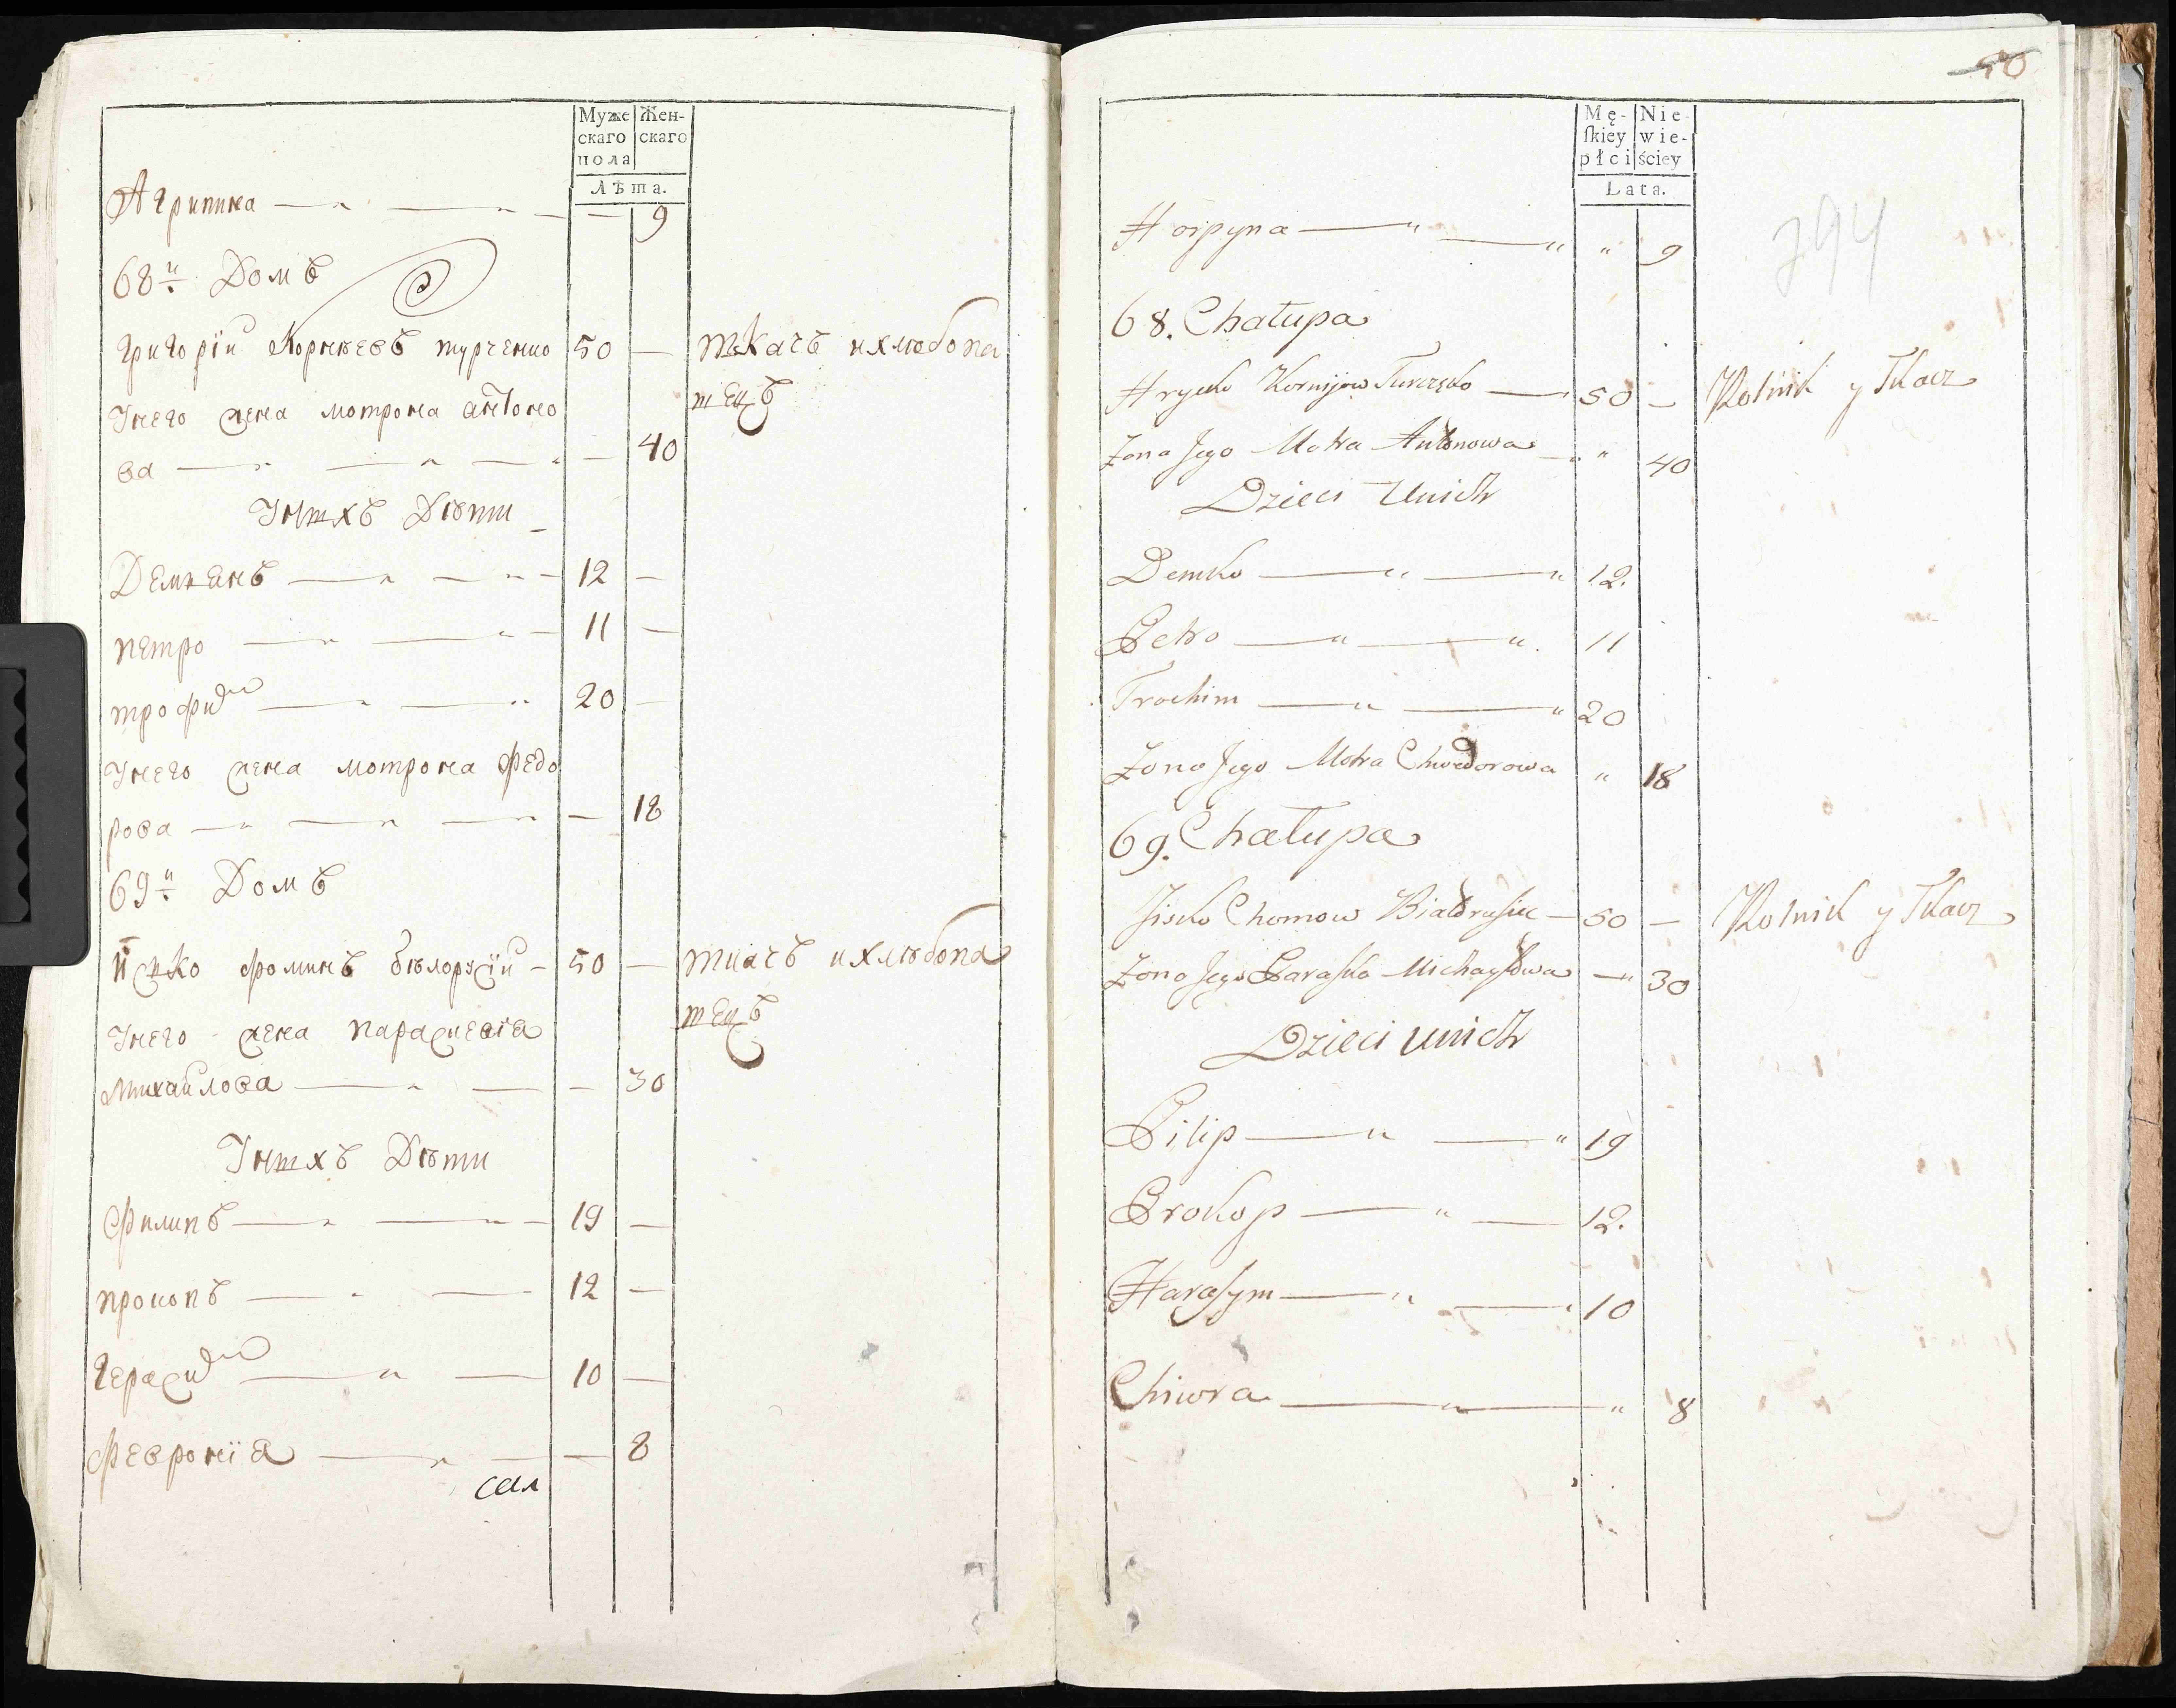 Муже
скаго
пола
Жен-
скаго
Лѣта.
Агрипина — — — 9
68й Домъ
Григорїи Корнѣевъ турченко 50 — ткачъ и хлѣбопа
шецъ
У него жена мотрона антоно
ва — — — 40
У нихъ Дѣти
Демианъ — — 12 —
петро — — 11 —
трофим — — 20 —
У него жена мотрона Федо
рова — — — 18
69й Домъ
Иско фоминъ бѣлорусїи — 50 — ткачъ и хлѣбопа
шецъ
У него жена параскевїя
Михайлова — — — 30
У нихъ Дѣти
Филипъ — — 19 —
прокопъ — — 12 —
герасим — — 10 —
Февронїя — — — 8
50
Mę-
skiey
płci
Nie-
wie-
ściey
Lata.
394
Horpyna — " — " " 9
68. Chałupa
Hrycko Kornijow Turczęko — 50 — Rolnik y Tkacz
Zona Jego Motra Antonowa — " 40
Dzieci Unich
Demko — " — " 12.
Petro — " — " 11
Trochim — " — " 20
Zona Jego Motra Chwedorowa " 18
69. Chałupa
Jisko Chomow Białorusiec — 50 — Rolnik y Tkacz
Zona Jego Paraska Michayłowa — " 30
Dzieci unich
Pilip — " — " 19
Prokop — " — 12.
Harasym — " — " 10
Chiwra — " — " 8